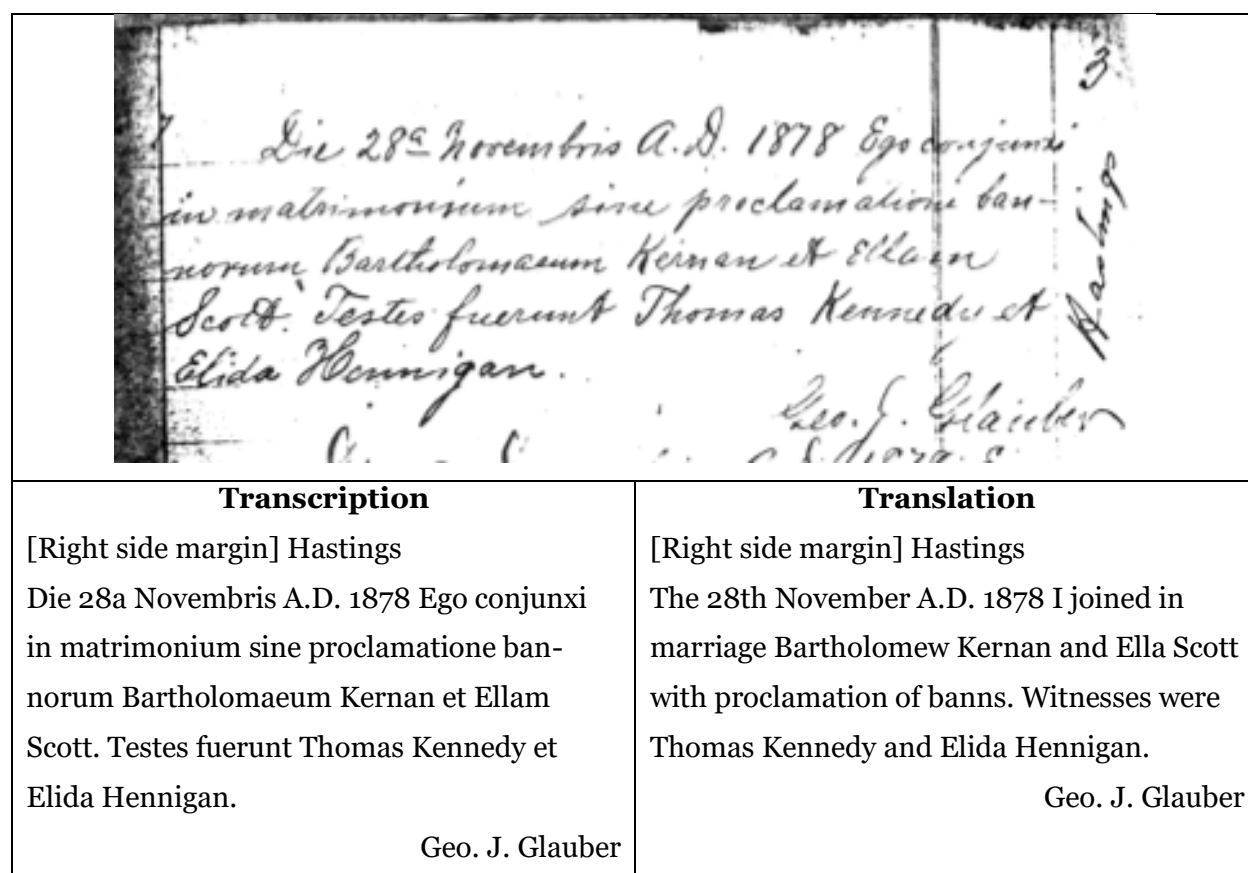 3
Hastings
Die 28a Novembris A.D. 1878 Ego conjunxi
in matrimonium sine proclamatione ban-
norum Bartholomaeum Kernan et Ellam
Scott. Testes fuerunt Thomas Kennedy et
Elida Hennigan.
Geo. J. Glauber
Transcription
[Right side margin] Hastings
Die 28a Novembris A.D. 1878 Ego conjunxi
in matrimonium sine proclamatione ban-
norum Bartholomaeum Kernan et Ellam
Scott. Testes fuerunt Thomas Kennedy et
Elida Hennigan.
Geo. J. Glauber
Translation
[Right side margin] Hastings
The 28th November A.D. 1878 I joined in
marriage Bartholomew Kernan and Ella Scott
with proclamation of banns. Witnesses were
Thomas Kennedy and Elida Hennigan.
Geo. J. Glauber